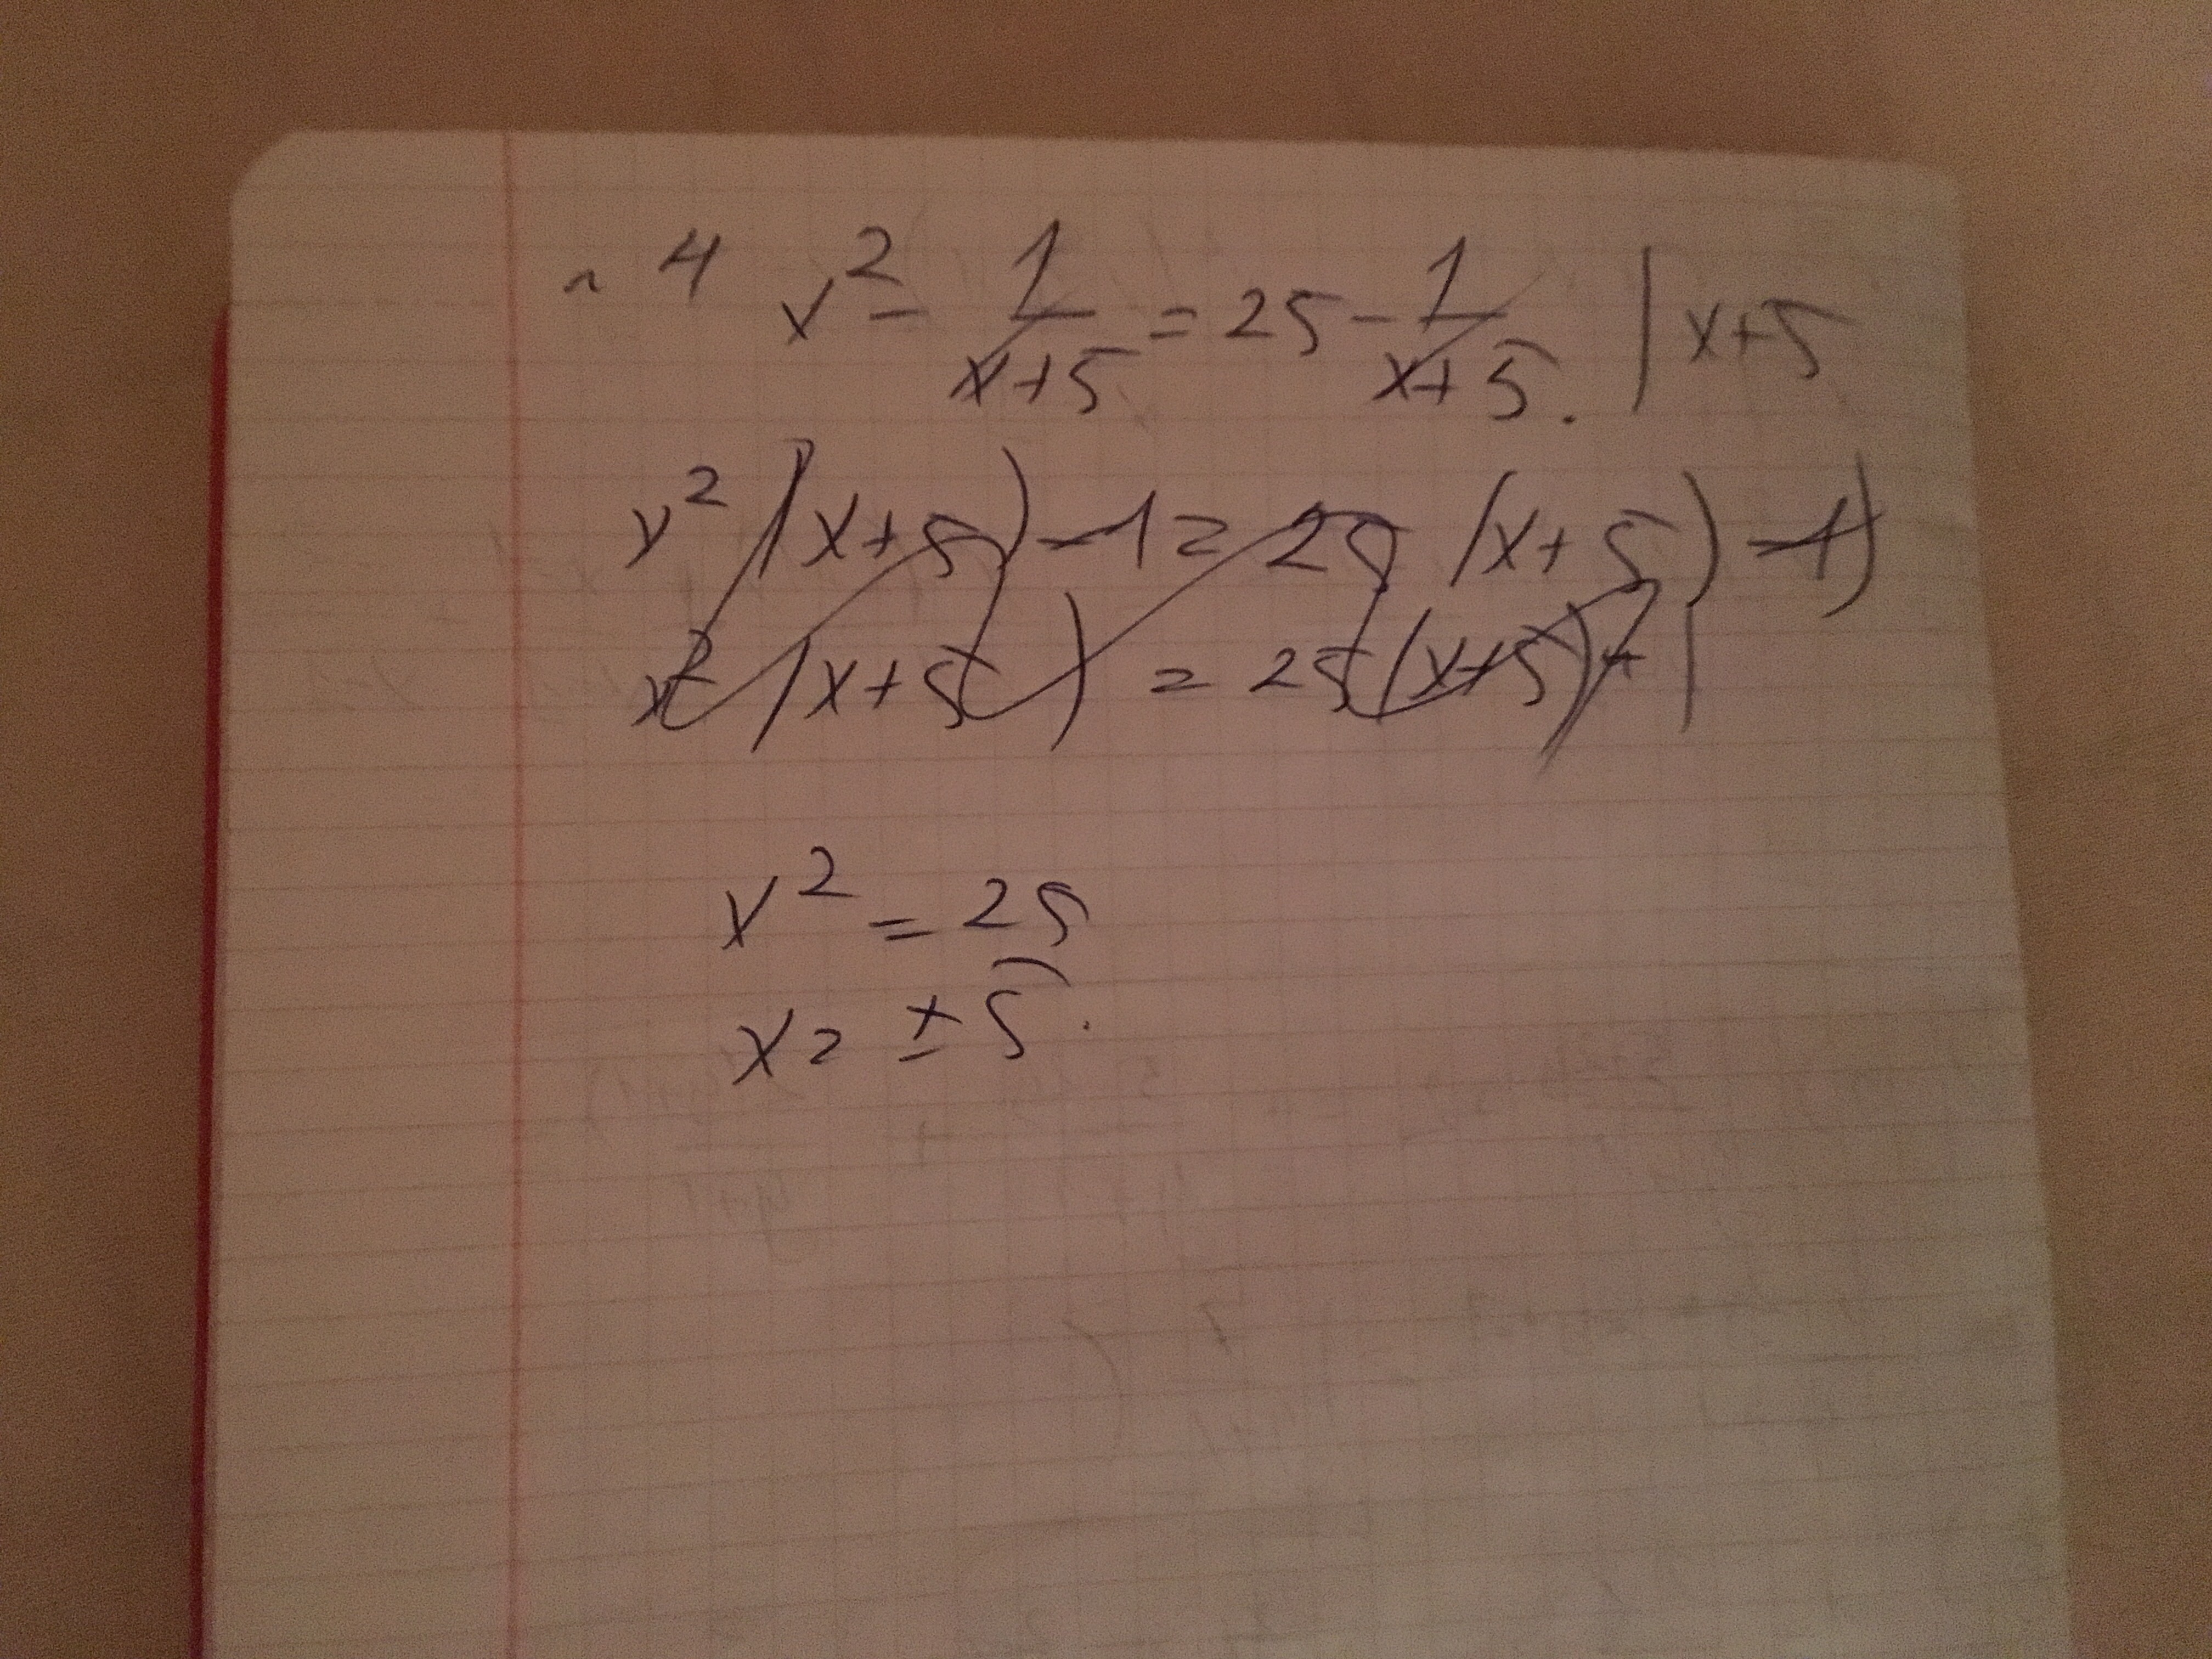 ~ 4 x² - 1/(x+5) = 25 - 1/(x+5). | x+5
x² (x+5) - 1 = 25 (x+5) - 1)
x² (x+5) = 25 (x+5) + |
x² = 25
x = ± 5.